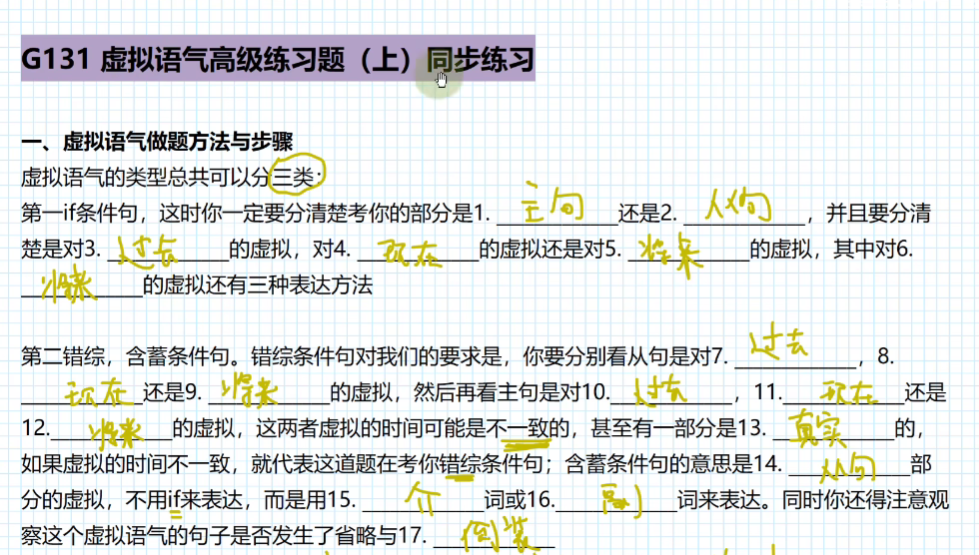 G131 虚拟语气高级练习题（上）同步练习
一、虚拟语气做题方法与步骤
虚拟语气的类型总共可以分三类：
第一if条件句，这时你一定要分清楚考你的部分是1. 主句 还是2. 从句 ，并且要分清
楚是对3. 过去 的虚拟，对4. 现在 的虚拟还是对5. 将来 的虚拟，其中对6.
将来 的虚拟还有三种表达方法
第二错综，含蓄条件句。错综条件句对我们的要求是，你要分别看从句是对7. 过去 ，8.
现在 还是9. 将来 的虚拟，然后再看主句是对10. 过去 ，11. 现在 还是
12. 将来 的虚拟，这两者虚拟的时间可能是不一致的，甚至有一部分是13. 真实 的，
如果虚拟的时间不一致，就代表这道题在考你错综条件句；含蓄条件句的意思是14. 从句 部
分的虚拟，不用if来表达，而是用15. 介 词或16. 副 词来表达。同时你还得注意观
察这个虚拟语气的句子是否发生了省略与17. 倒装